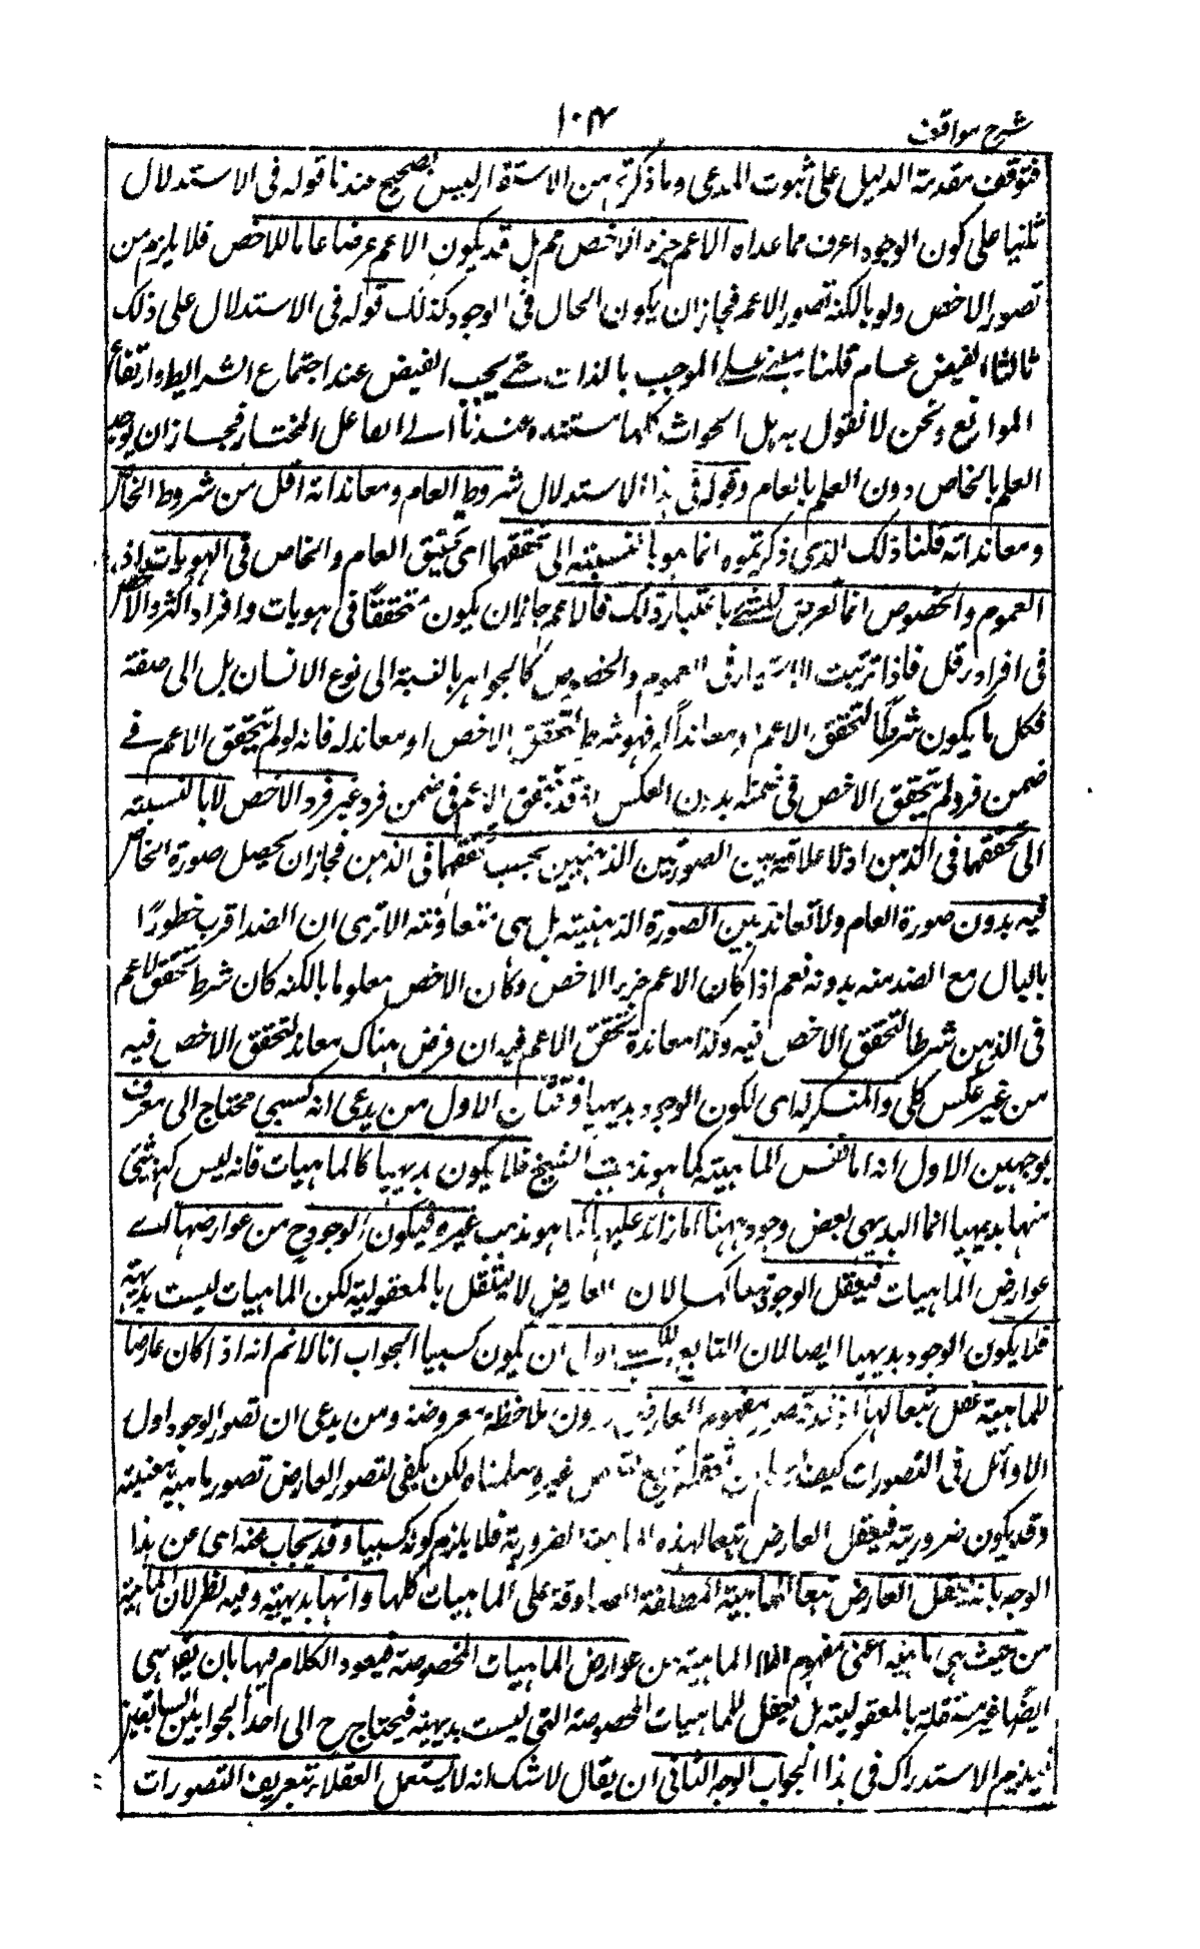 شرح مواقف
۱۰۴
فتوقف مقدمة الدليل على ثبوت المدعى وما ذكرتم من الاستقراء ليس بصحيح عندنا قوله فى الاستدلال
ثانيا على كون الوجود اعرف مما عداه الاعم جزء الاخص مم بل قد يكون الاعم عرضا عاما للاخص فلا يلزم من
تصور الاخص ولو بالكنه تصور الاعم فجاز ان يكون الحال فى الوجود كذلك قوله فى الاستدلال على ذلك
ثالثا الفيض عام قلنا مبنى على الموجب بالذات حتے يجب الفيض عند اجتماع الشرايط وارتفاع
الموانع ونحن لا نقول به بل الحوادث كلها مستندة عندنا الى الفاعل المختار فجاز ان يوجد
العلم بالخاص دون العلم بالعام وقوله فى هذا الاستدلال شروط العام ومعانداته اقل من شروط الخاص
ومعانداته قلنا ذلك الذى ذكرتموه انما هو بالنسبة الى تحققهما اى تحقق العام والخاص فى الهويات اذ
العموم والخصوص انما تعرض للشئ باعتبار ذلك فالاعم جاز ان يكون متحققا فى هويات وافراد اكثر والاخص
فى افراد اقل فاذا ترتبت الاشياء فى العموم والخصوص كالجواهر بالنسبة الى نوع الانسان بل الى صنفه
فكل ما يكون شرطا لتحقق الاعم او معاندا له فهو شرط لتحقق الاخص او معاند له فانه لو لم يتحقق الاعم فے
ضمن فرد لم يتحقق الاخص فى ضمنه بدون العكس اذ قد يتحقق الاعم فى ضمن فرد غير فرد الاخص لا بالنسبة
الى تحققهما فى الذهن اذ لا علاقة بين الصورتين الذهنيتين بحسب تحققهما فى الذهن فجاز ان يحصل صورة الخاص
فيه بدون صورة العام ولا تعاند بين الصورة الذهنية بل هى متعاونة الا ترى ان الضد اقرب خطورا
بالبال مع الضد منه بدونه نعم اذا كان الاعم جزء الاخص وكان الاخص معلوما بالكنه كان شرط تحقق الاعم
فى الذهن شرطا لتحقق الاخص فيه وكذا معاندة تحقق الاعم فيه ان فرض هناك معاند لتحقق الاخص فيه
من غير عكس كلى والمنكر له اى لكون الوجود بديهيا فرقتان الاول من يدعى انه كسبى محتاج الى معرف
بوجهين الاول انه اما نفس الماهية كما هو مذهب الشيخ فلا يكون بديهيا كالماهيات فانه ليس كنه شئ
منها بديهيا انما البديهى بعض وجوهها اما زائد عليها كما هو مذهب غيره فيكون الوجود ح من عوارضها اے
عوارض الماهيات فيعقل الوجود تبعا لها لان العارض لا يستقل بالمعقولية لكن الماهيات ليست بديهية
فلا يكون الوجود بديهيا ايضا لان التابع للكسبے اولى ان يكون كسبيا الجواب انا لا نم انه اذا كان عارضا
للماهية عقل تبعا لها اذ قد يتصور مفهوم العارض بدون ملاحظة معروضه ومن يدعى ان تصور الوجود اول
الاوائل فى التصورات كيف يسلم ان تعقله تبع لتعقل غيره سلمناه لكن يكفى لتصور العارض تصور ماهية معينة
وقد يكون ضرورية فيعقل العارض تبعا لهذه الماهية الضرورية فلا يلزم كونه كسبيا وقد يجاب عنه اى عن هذا
الوجه بانه يعقل العارض تبعا للماهية المطلقة الصادقة على الماهيات كلها وانها بديهية وفيه نظر لان الماهية
من حيث هى ماهية اعنى مفهوم الماهية من عوارض الماهيات المخصوصة فيعود الكلام فيها بان يقال هى
ايضا غير مستقلة بالمعقولية بل تعقل للماهيات المخصوصة التى ليست بديهية فيحتاج ح الى احد الجوابين السابقين
فيلزم الاستدراك فى هذا الجواب الوجه الثانى ان يقال لا شك انه لا يشتغل العقلاء بتعريف التصورات